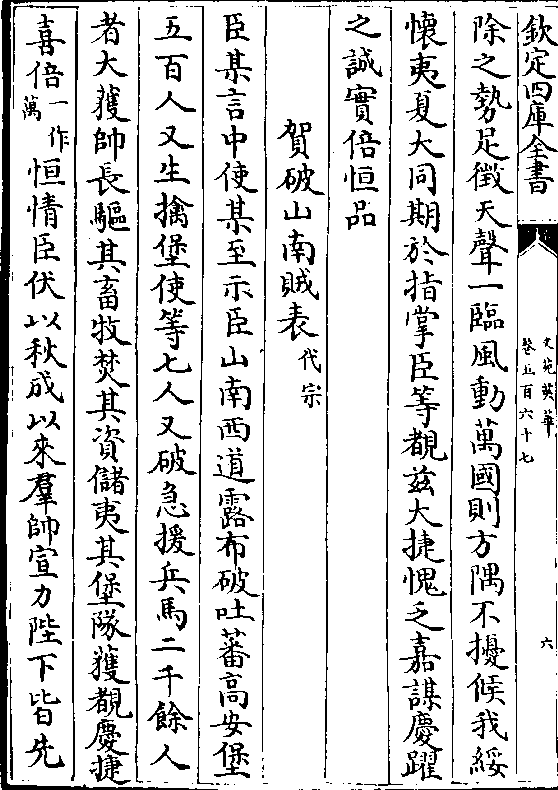 欽定四庫全書
文苑英華
卷五百六十七
六
除之勢足徴天聲一臨風動萬國則方隅不擾候我綏
懷夷夏大同期於指掌臣等覩兹大捷愧乏嘉謀慶躍
之誠實倍恒品
賀破山南賊表代宗
臣某言中使某至示臣山南西道露布破吐蕃高安堡
五百人又生擒堡使等七人又破急援兵馬二千餘人
者大獲帥長驅其畜牧焚其資儲夷其堡隊獲覩慶捷
喜倍一作萬恒情臣伏以秋成以來羣帥宣力陛下皆先